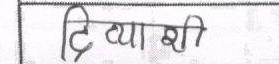 द्रिव्याशी